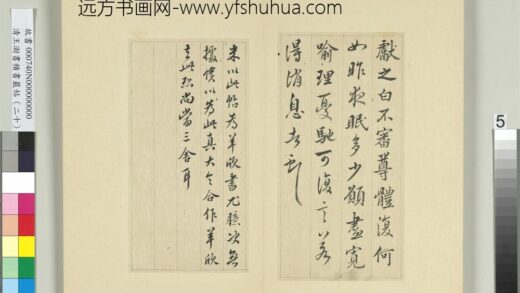 远方书画网-www.yfshuhua.com
故書 000740N000000000
清王澍書積書巖帖(二十)
獻之白不審尊體復何
如昨夜眠多少願盡寬
喻理憂馳可復言以若
得消息
米以此帖為羊欣書尤臆決無
據僕以為此真大令合作羊欣
去此恐尚當三舍耳
5